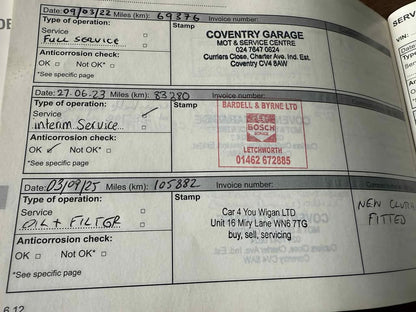 Date: 09/03/22 Miles (km): 69376 Invoice number:
Type of operation:
Service
FULL SERVICE
Anticorrosion check:
OK Not OK*
*See specific page
COVENTRY GARAGE
MOT & SERVICE CENTRE
024 7647 0624
Curriers Close, Charter Ave. Ind. Est.
Coventry CV4 8AW
SERV
VIN:
Date: 27.06.23 Miles (km): 83280 Invoice number:
Type of operation:
Service
interim Service
Anticorrosion check:
OK ✓ Not OK*
*See specific page
Stamp
BARDELL & BYRNE LTD
BOSCH
LETCHWORTH
01462 672885
Date: 03/09/25 Miles (km): 105882 Invoice number:
Type of operation:
Service
OIL + FILTER
Anticorrosion check:
OK Not OK*
*See specific page
Stamp
Car 4 You Wigan LTD
Unit 16 Miry Lane WN6 7TG
buy, sell, servicing
NEW CLUTCH
FITTED
6.12